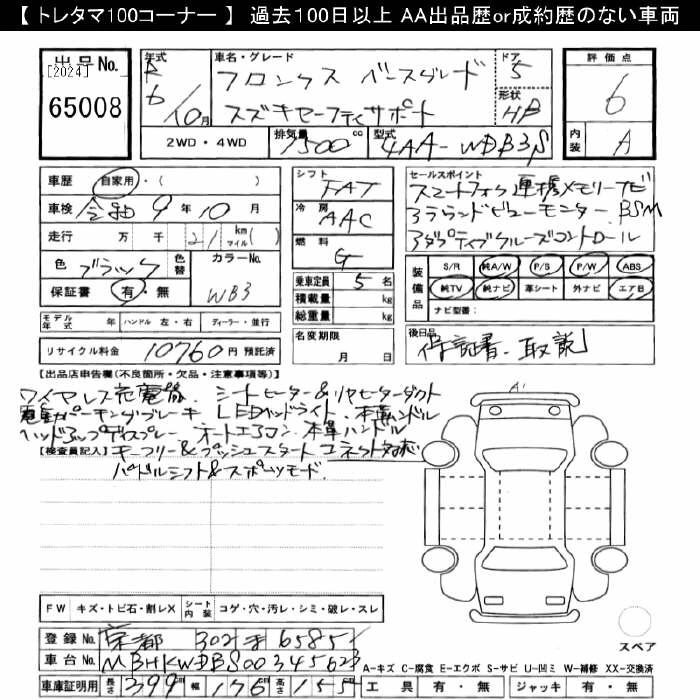 【トレタマ100コーナー】 過去100日以上 AA出品歴or成約歴のない車両
出品No. [2024] 65008
年式 R6/10月
車名・グレード フロンクス ベースグレード スズキセーフティサポート
ドア 5
形状 HB
評価点 6
内装 A
2WD・4WD
排気量 1500cc
型式 4AA-WDB3S
車歴 自家用・( )
車検 令和 9年 10月
走行 万 千 21 km マイル( )
色 ブラック
色替
カラーNo. WB3
保証書 有・無
モデル年式 年 ハンドル 左・右 ディーラー・並行
リサイクル料金 10760円 預託済
シフト FAT
冷房 AAC
燃料 G
乗車定員 5名
積載量 kg
総重量 kg
名変期限 月 日
セールスポイント
スマートフォン連携メモリーナビ
アラウンドビューモニター BSM
アダプティブクルーズコントロール
装備品 S/R 純A/W P/S P/W ABS
純TV 純ナビ 革シート 外ナビ エアB
ナビ型番:
後日品 保証書、取説
【出品店申告欄(不良箇所・欠品・注意事項等)】
ワイヤレス充電器、シートヒーター&リヤヒーターダクト
電動パーキングブレーキ LEDヘッドライト、本革ハンドル
ヘッドアップディスプレー オートエアコン、本革ハンドル
【検査員記入】 キーフリー&プッシュスタート コネクト対応
パドルシフト&スポーツモード
FW キズ・トビ石・割レX シート内装 コゲ・穴・汚レ・シミ・破レ・スレ
スペア
登録No. 京都 302 ま 6585
車台No. MBHKWDBS00345623
A-キズ C-腐食 E-エクボ S-サビ U-凹ミ W-補修 XX-交換済
車庫証明用 長さ 399 幅 176 高さ 155
工具 有・無 ジャッキ 有・無